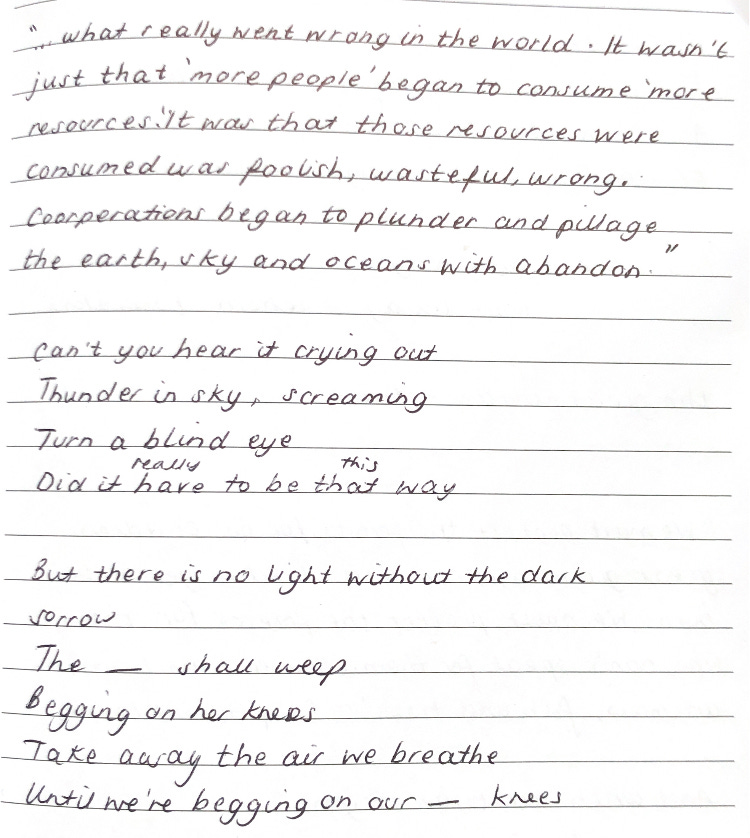 "... what really went wrong in the world. It wasn't
just that 'more people' began to consume 'more
resources.' It was that those resources were
consumed was foolish, wasteful, wrong.
Coorperations began to plunder and pillage
the earth, sky and oceans with abandon."
Can't you hear it crying out
Thunder in sky, screaming
Turn a blind eye
really this
Did it have to be that way
But there is no light without the dark
sorrow
The — shall weep
Begging on her knees
Take away the air we breathe
Until we're begging on our — knees